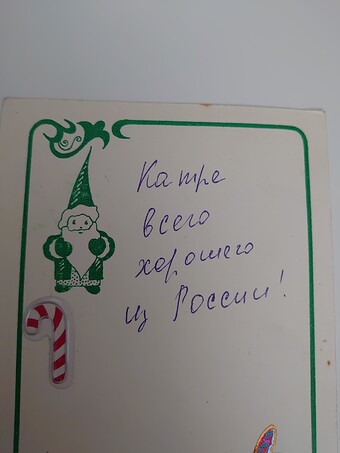 Катре
всего
хорошего
из России!